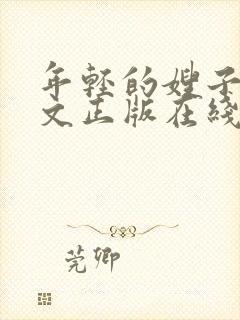 年轻的嫂子
文正版在綫
莞卿